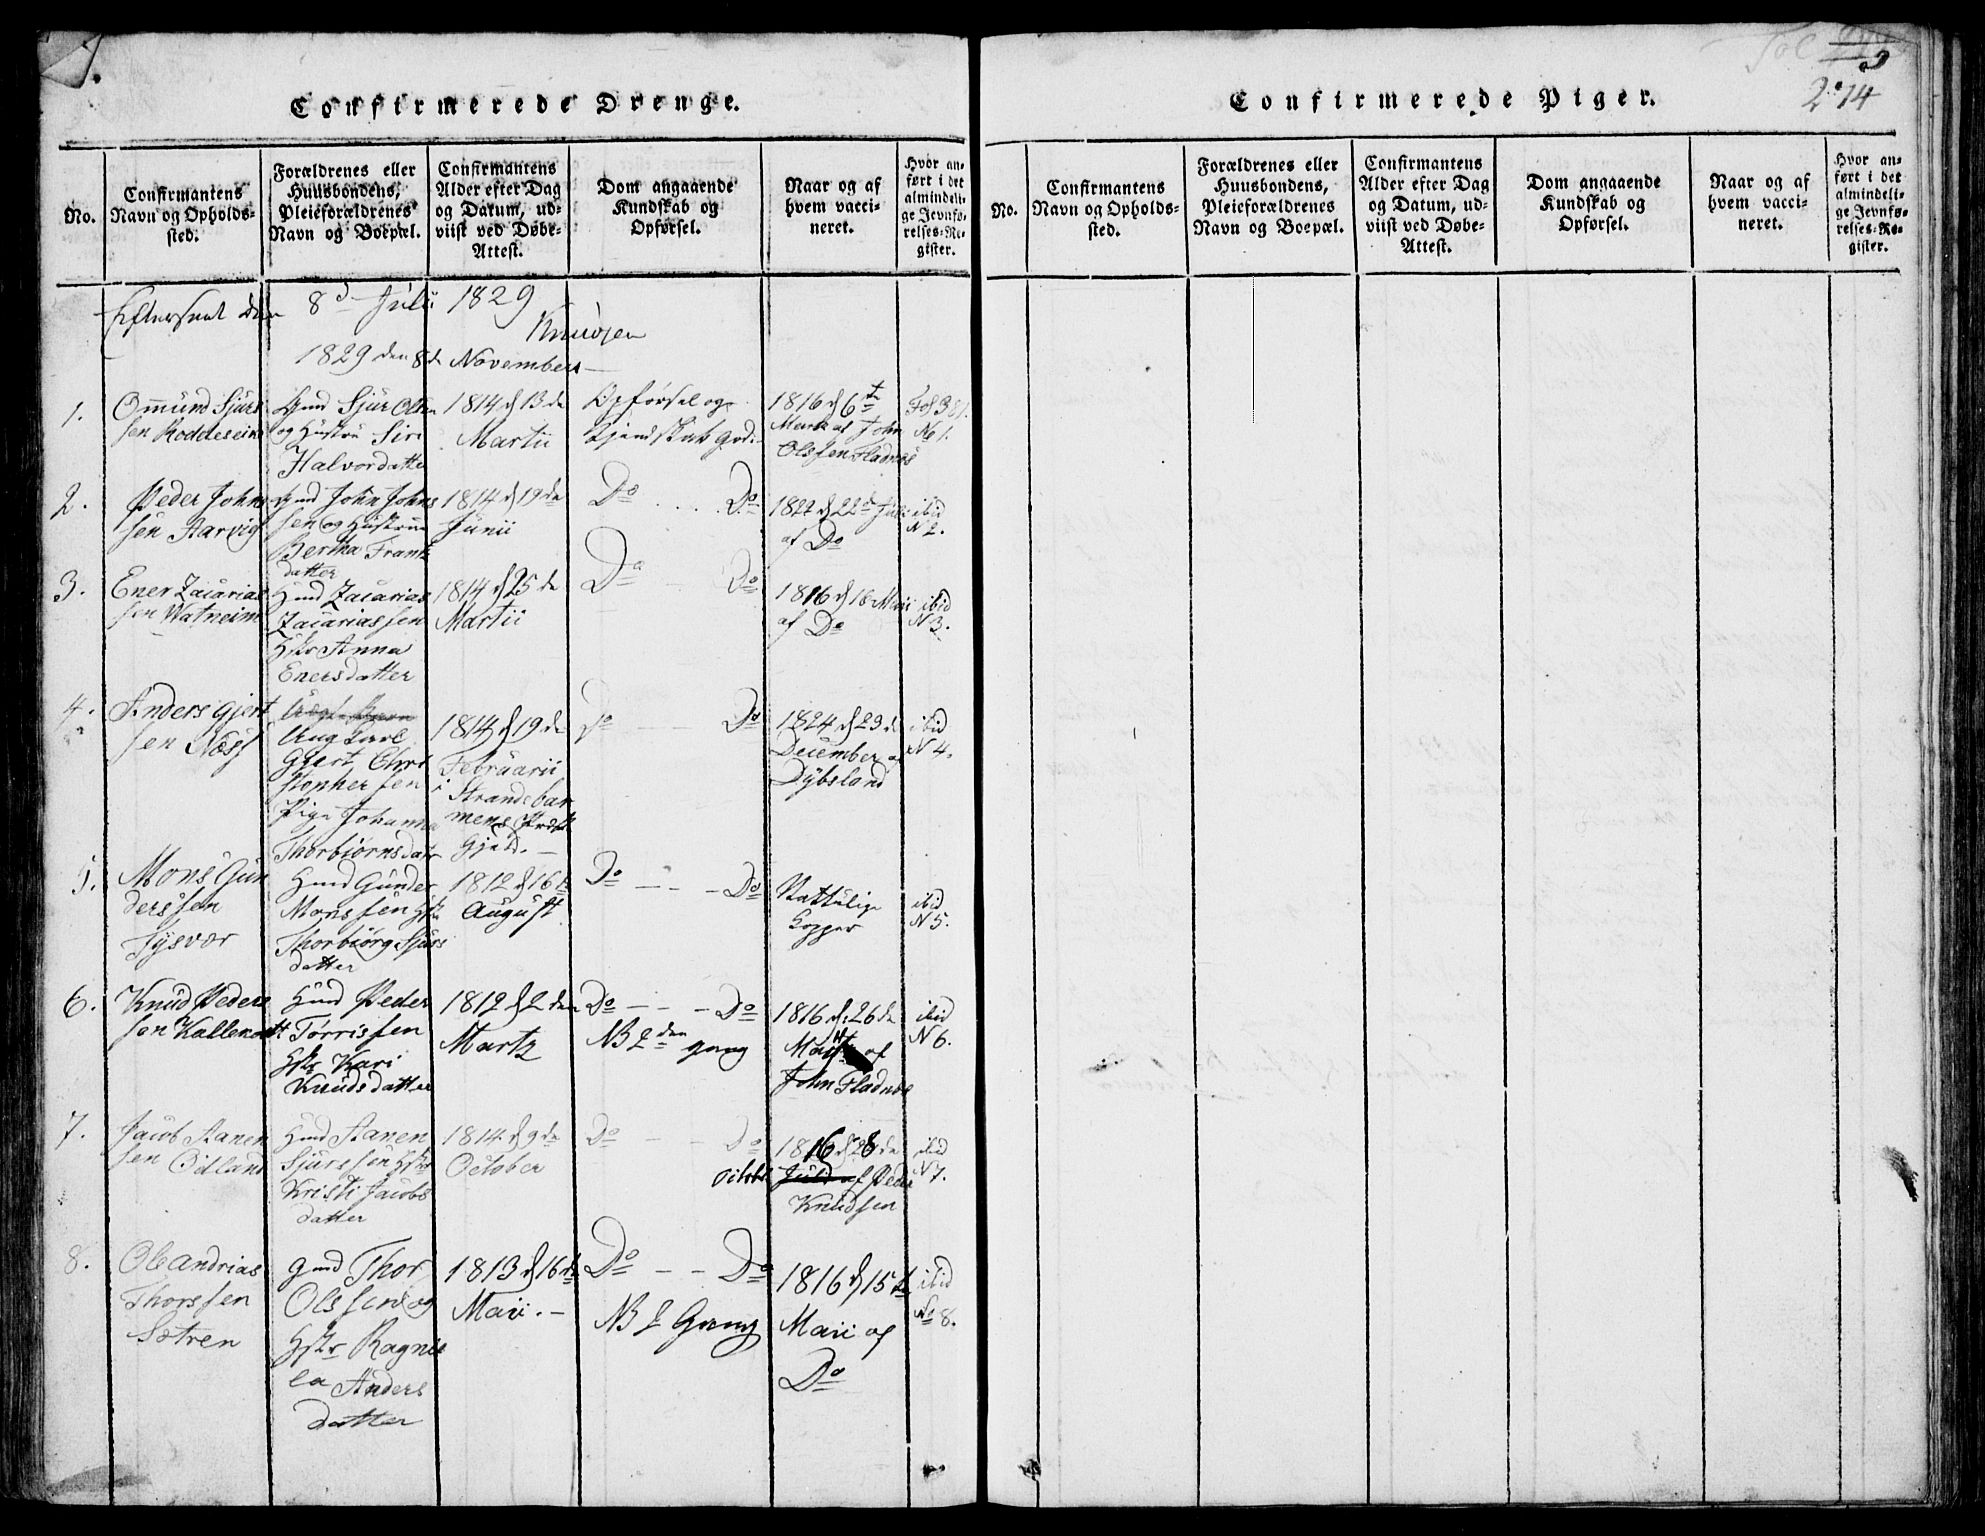 Confirmerede Drenge.
No.
Confirmantens
Navn og Opholds-
sted.
Forældrenes eller
Huusbondens,
Pleieforældrenes
Navn og Boepæl.
Confirmantens
Alder efter Dag
og Datum, ud-
viist ved Døbe-
Attest.
Dom angaaende
Kundskab og
Opførsel.
Naar og af
hvem vacci-
neret.
Hvor an-
ført i det
almindeli-
ge Jevnfø-
relses-Re-
gister.
Efterseet den 8d Julii 1829
Knudsen
1829 den 8de November
1.
Ommund Sjurs
sen
Gmd Sjur Olsen
og Hustru Siri
Halvordatter
1814 d 13de
Martii
Opførsel og
Kjendskab god.
1816 d 6te
Martz af John
Olssen Fladnes
Fol 381.
No 1.
2.
Peder Johns
sen Aarvig
Gmd John Johns
sen og Hustrue
Bertha Frantz
datter
1814 d 19de
Junii
Do . . . Do
1822 d 22de Juli
af Do
ibid
N 2.
3.
Ener Zacarias
sen Watneim
Hmd Zacarias
Zacariassen
Hstr Anna
Enersdatter
1814 d 25de
Martii
Do — Do
1816 d 16 Maii
af Do
ibid
N 3.
4.
Anders Gjert
sen Næss
Ung Karl
Gjert Chri
stophersen
Pige Johanna
Thorbiørnsdatr
1814 d 19de
Februarii
i Strandebar
mens Præste
Gjeld. —
Do — — Do
1824 d 23de
December af
Dybsland
ibid
N 4.
5.
Mons Gun
derssen
Tysvær
Hmd Gunder
Monssen Hstr
Thorbiørg Sjurs
datter
1812 d 16de
August
Do — — Do
Nattulige
Kopper
ibid
N 5.
6.
Knud Peders
sen Kallenodt
Hmd Peder
Tørrissen
Hstr Kari
Knudsdatter
1812 d 2den
Martz
Do — — Do
NB 2den gang
1816 d. 26de
af
John Fladnes
ibid
N 6.
7.
Jacob Aanen
sen Odland
Hmd Aanen
Sjurssen Hstr
Kristi Jacobs
datter
1814 d 9de
October
Do — — Do
1816 d 28de
Octobr Julii af Peder
Knudsen
ibid
N 7.
8.
Ole Andrias
Thorssen
Sætren
Gmd Thor
Olssen og
Hstr Ragnil
la Anders
datter
1813 d 16de
Maii. —
Do — — Do
NB 2 Gang
1816 d 15de
Maii af
Do
ibid
No 8.
Confirmerede Piger.
Fol
274
No.
Confirmantens
Navn og Opholds-
sted.
Forældrenes eller
Huusbondens,
Pleieforældrenes
Navn og Boepæl.
Confirmantens
Alder efter Dag
og Datum, ud-
viist ved Døbe-
Attest.
Dom angaaende
Kundskab og
Opførsel.
Naar og af
hvem vacci-
neret.
Hvor an-
ført i det
almindeli-
ge Jevnfø-
relses-Re-
gister.